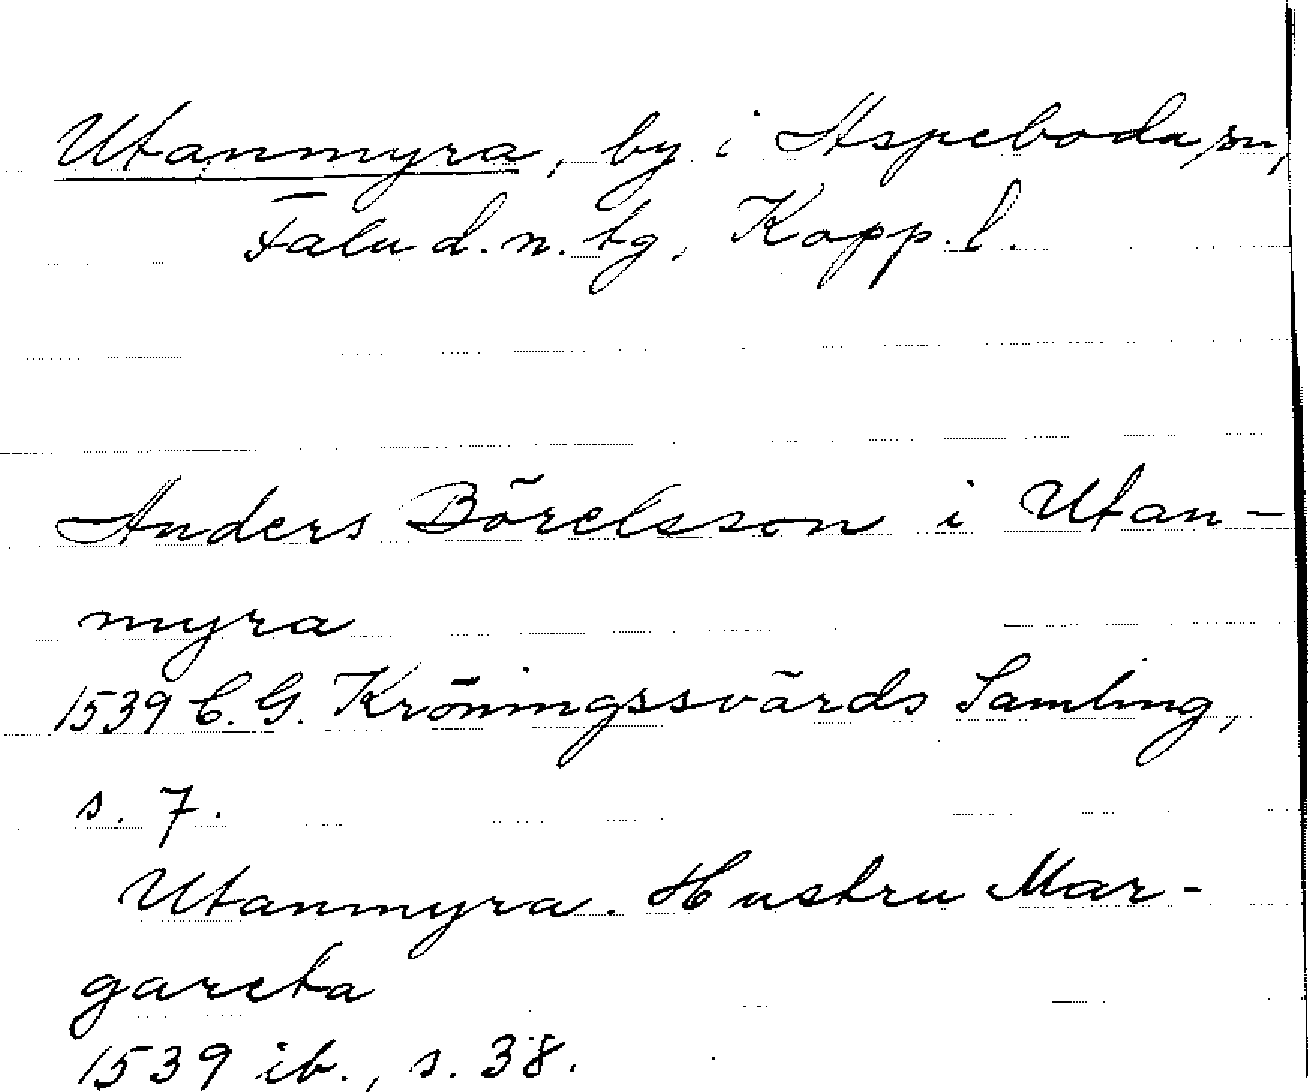 Utanmyra, by i Aspeboda sn,
Falu d. n. tg, Kopp. l.
Anders Börelsson i Utan-
myra
1539 C. G. Kröningssvärds Samling,
s. 7.
Utanmyra. Hustru Mar-
gareta
1539 ib., s. 38.